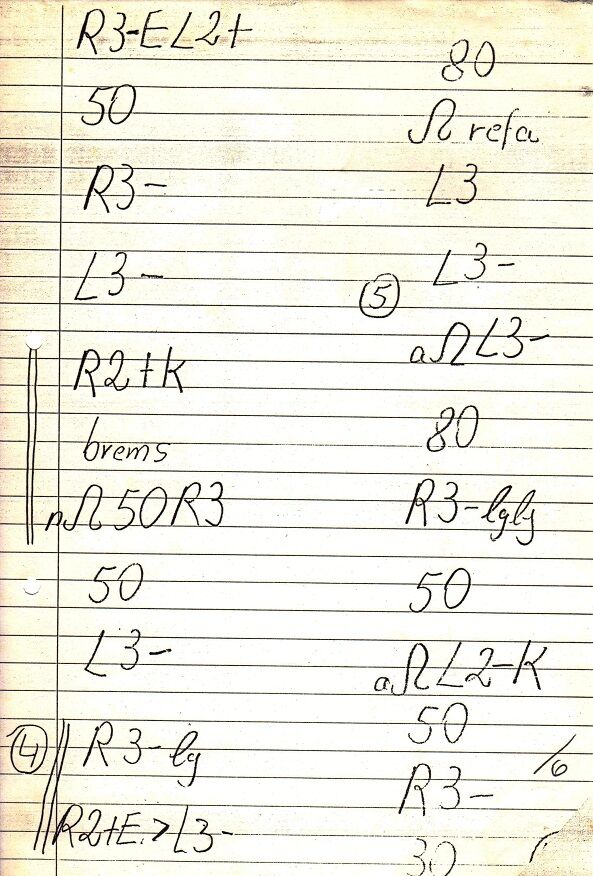 R3-EL2+
50
R3-
L3-
R2+K
brems
nΩ50R3
50
L3-
④ R3-lg
R2+E.>L3-
80
Ω refa
L3
L3-
⑤
aΩL3-
80
R3-lglg
50
aΩL2-K
50
R3-
30
/6